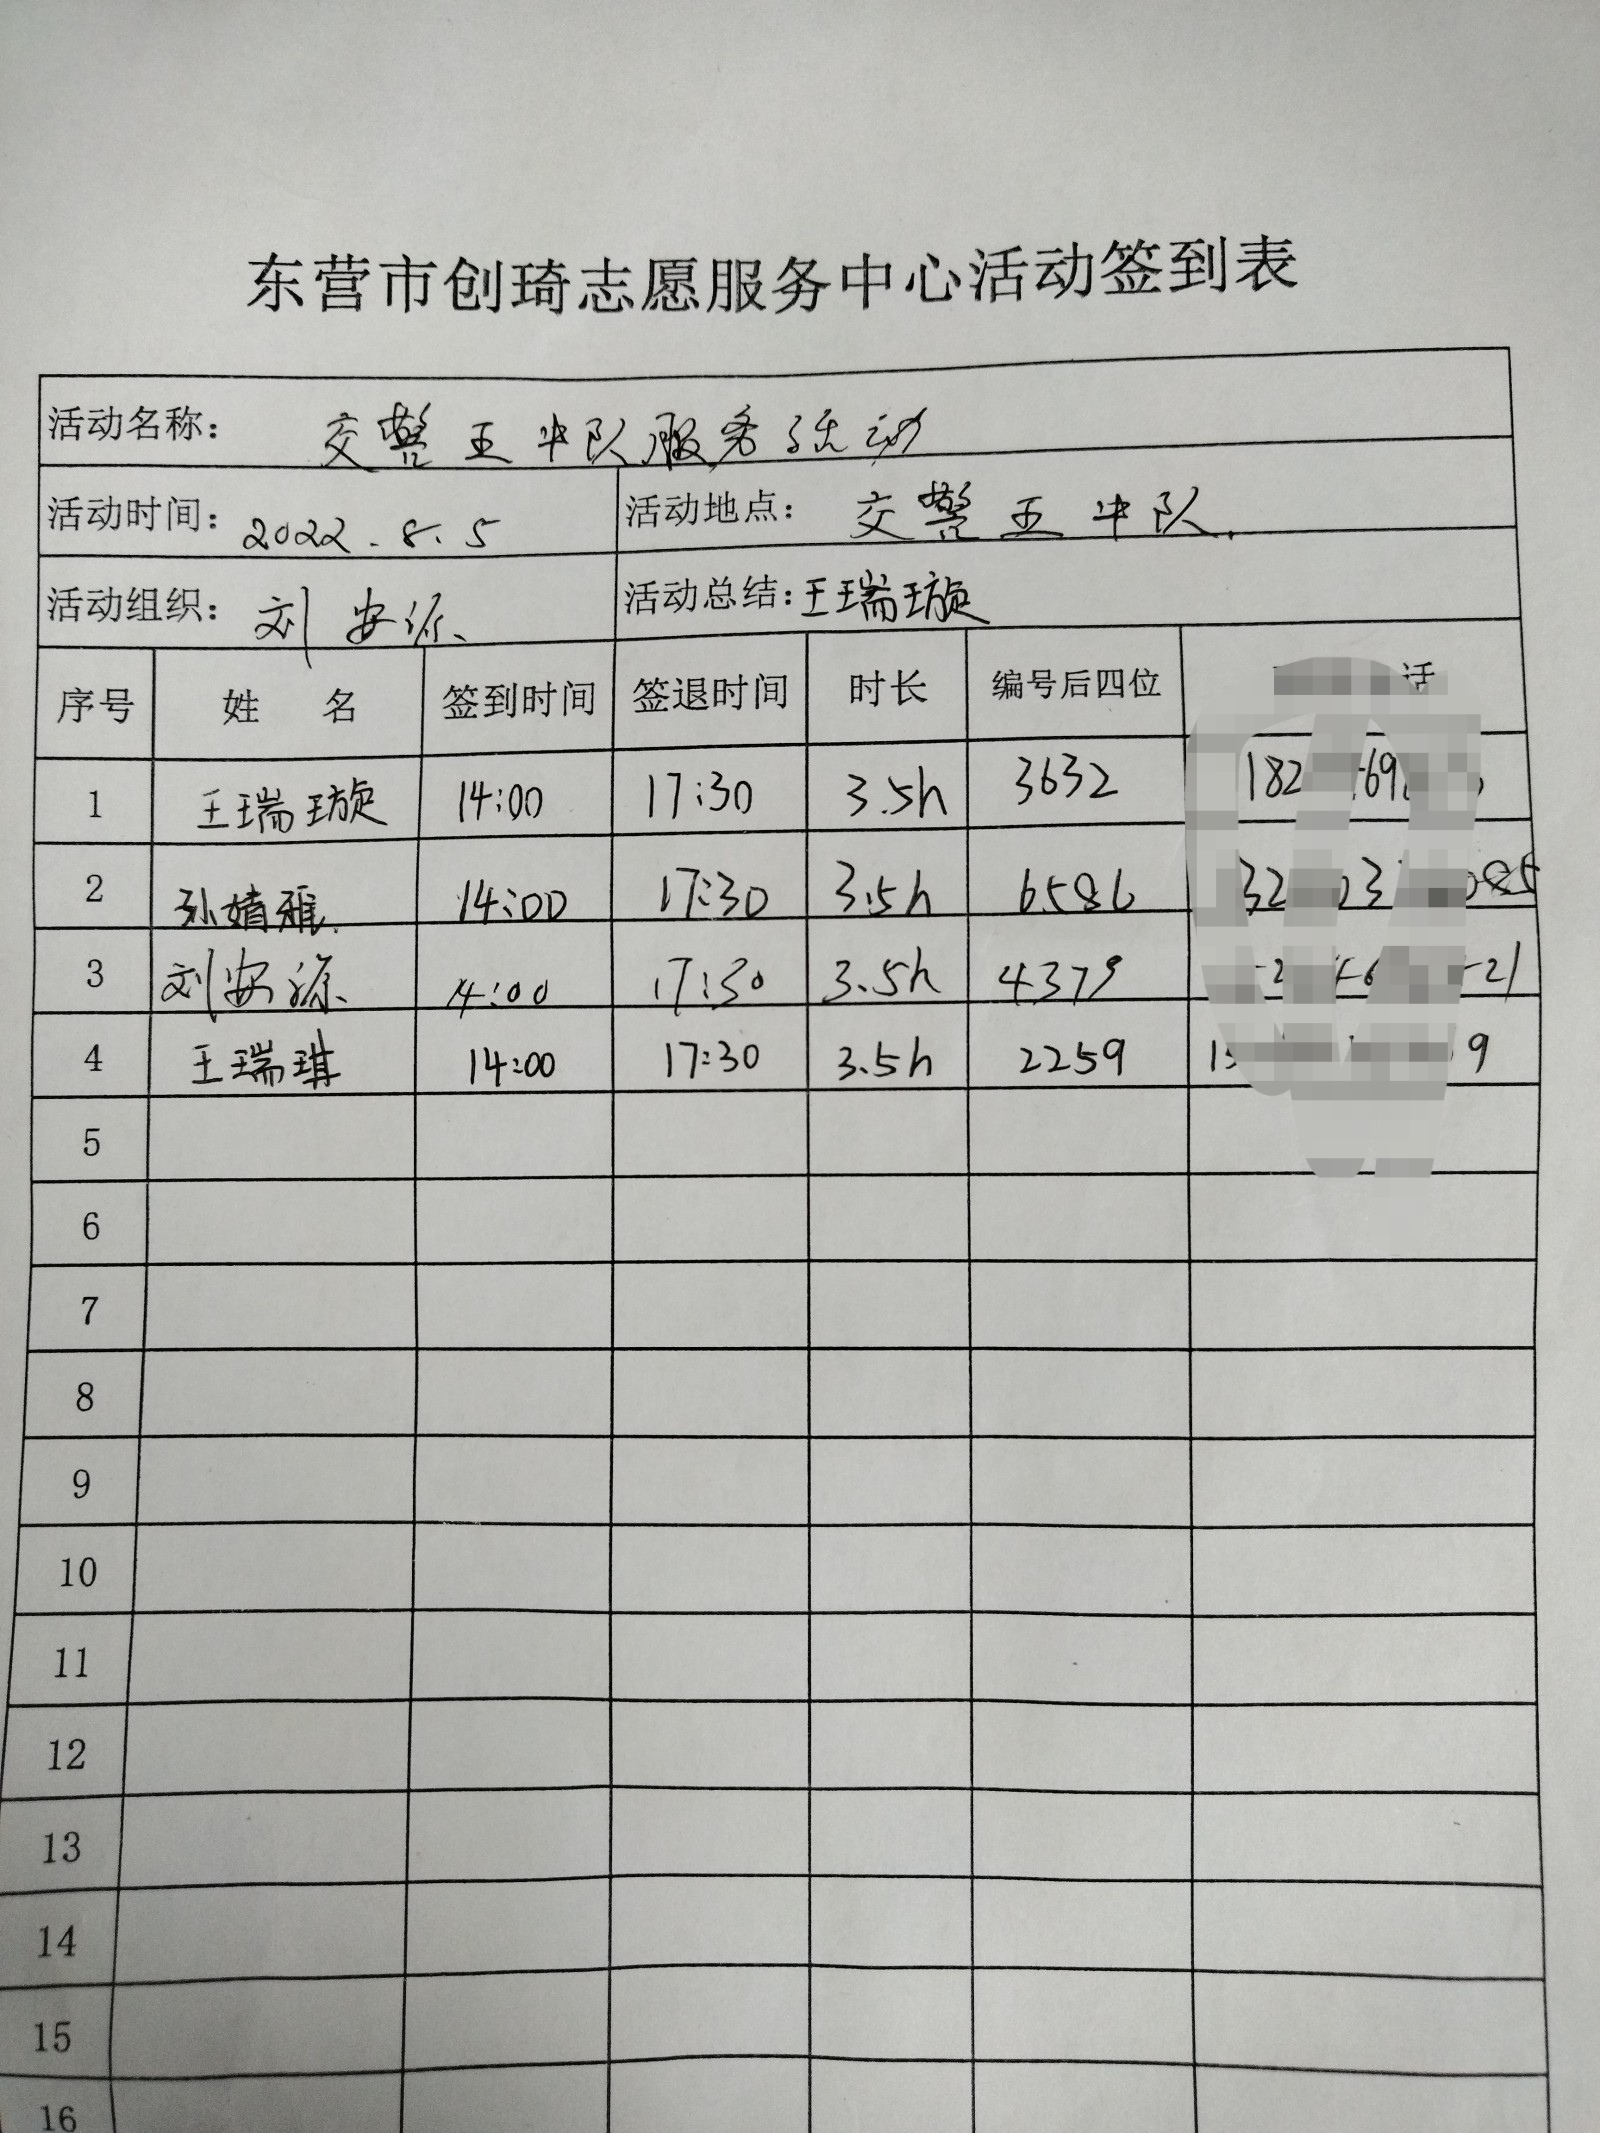 东营市创琦志愿服务中心活动签到表
活动名称： 交警五中队服务活动
活动时间：2022.8.5 活动地点： 交警五中队.
活动组织：刘安源 活动总结：王瑞璇
序号 姓 名 签到时间 签退时间 时长 编号后四位 话
1 王瑞璇 14:00 17:30 3.5h 3632
2 孙婧雅 14:00 17:30 3.5h 6586
3 刘安源 14:00 17:30 3.5h 4379
4 王瑞琪 14:00 17:30 3.5h 2259
5
6
7
8
9
10
11
12
13
14
15
16